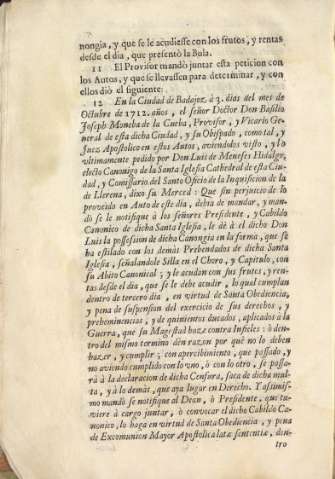 nongia, y que se le acudiesse con los frutos, y rentas
desde el dia, que presentò la Bula.
11 El Provisor mandò juntar esta peticion con
los Autos, y que se llevassen para determinar, y con
ellos diò el siguiente:
12 En la Ciudad de Badajoz à 3. dias del mes de
Octubre de 1712. años, el señor Doctor Don Basilio
Joseph Moncba de la Cueba, Provisor, y Vicario Ge-
neral de esta dicha Ciudad, y su Obispado, como tal, y
Juez Apostolico en estos Autos, aviendolos visto, y lo
ultimamente pedido por Don Luis de Meneses Hidalgo,
electo Canonigo de la Santa Iglesia Cathedral de esta Ciu-
dad, y Comissario del Santo Oficio de la Inquisicion de la
de Llerena, dixo su Merced: Que sin perjuicio de lo
proveido en Auto de este dia, debia de mandar, y man-
dò se le notifique à los señores Presidente, y Cabildo
Canonico de dicha Santa Iglesia, le dè à el dicho Don
Luis la possession de dicha Canongia en la forma, que se
ha estilado con los demàs Prebendados de dicha Santa
Iglesia, señalandole Silla en el Choro, y Capitulo, con
su Abito Canonical; y le acudan con sus frutos, y ren-
tas desde el dia, que se le debe acudir, lo qual cumplan
dentro de tercero dia, en virtud de Santa Obediencia,
y pena de suspension del exercicio de sus derechos, y
prebeminencias, y de quinientos ducados, aplicados à la
Guerra, que su Magestad haze contra Infieles: ò den-
tro del mismo termino dèn razon por què no lo deben
hazer, y cumplir; con apercibimiento, que passado, y
no aviendo cumplido con lo vno, ò con lo otro, se passa-
rà à la declaracion de dicha Censura, saca de dicha mul-
ta, y à lo demàs, que aya lugar en Derecho. Y assimis-
mo mandò se notifique al Dean, ò Presidente, que tu-
viere à cargo juntar, ò convocar el dicho Cabildo Ca-
nonico, lo haga en virtud de Santa Obediencia, y pena
de Excomunion Mayor Apostolica latæ sententiæ, den-
tro